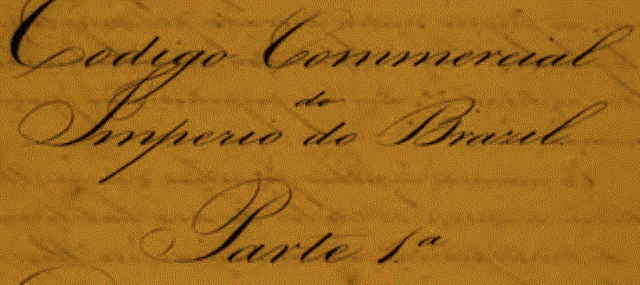 Codigo Commercial
do
Imperio do Brazil.
Parte 1.ª